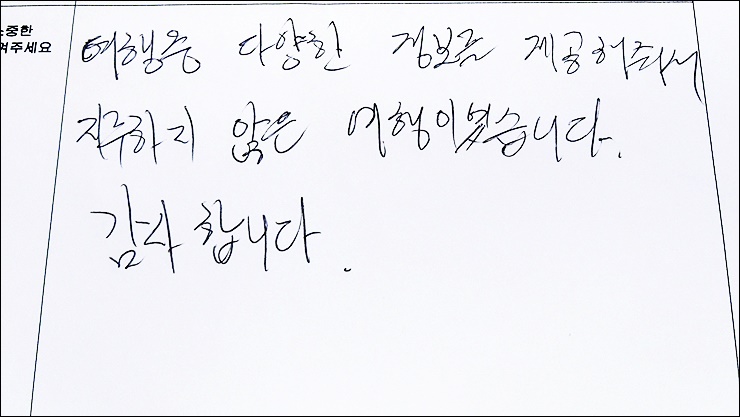 소중한
겨주세요
여행중 다양한 정보를 제공해주셔서
지루하지 않은 여행이었습니다.
감사합니다.